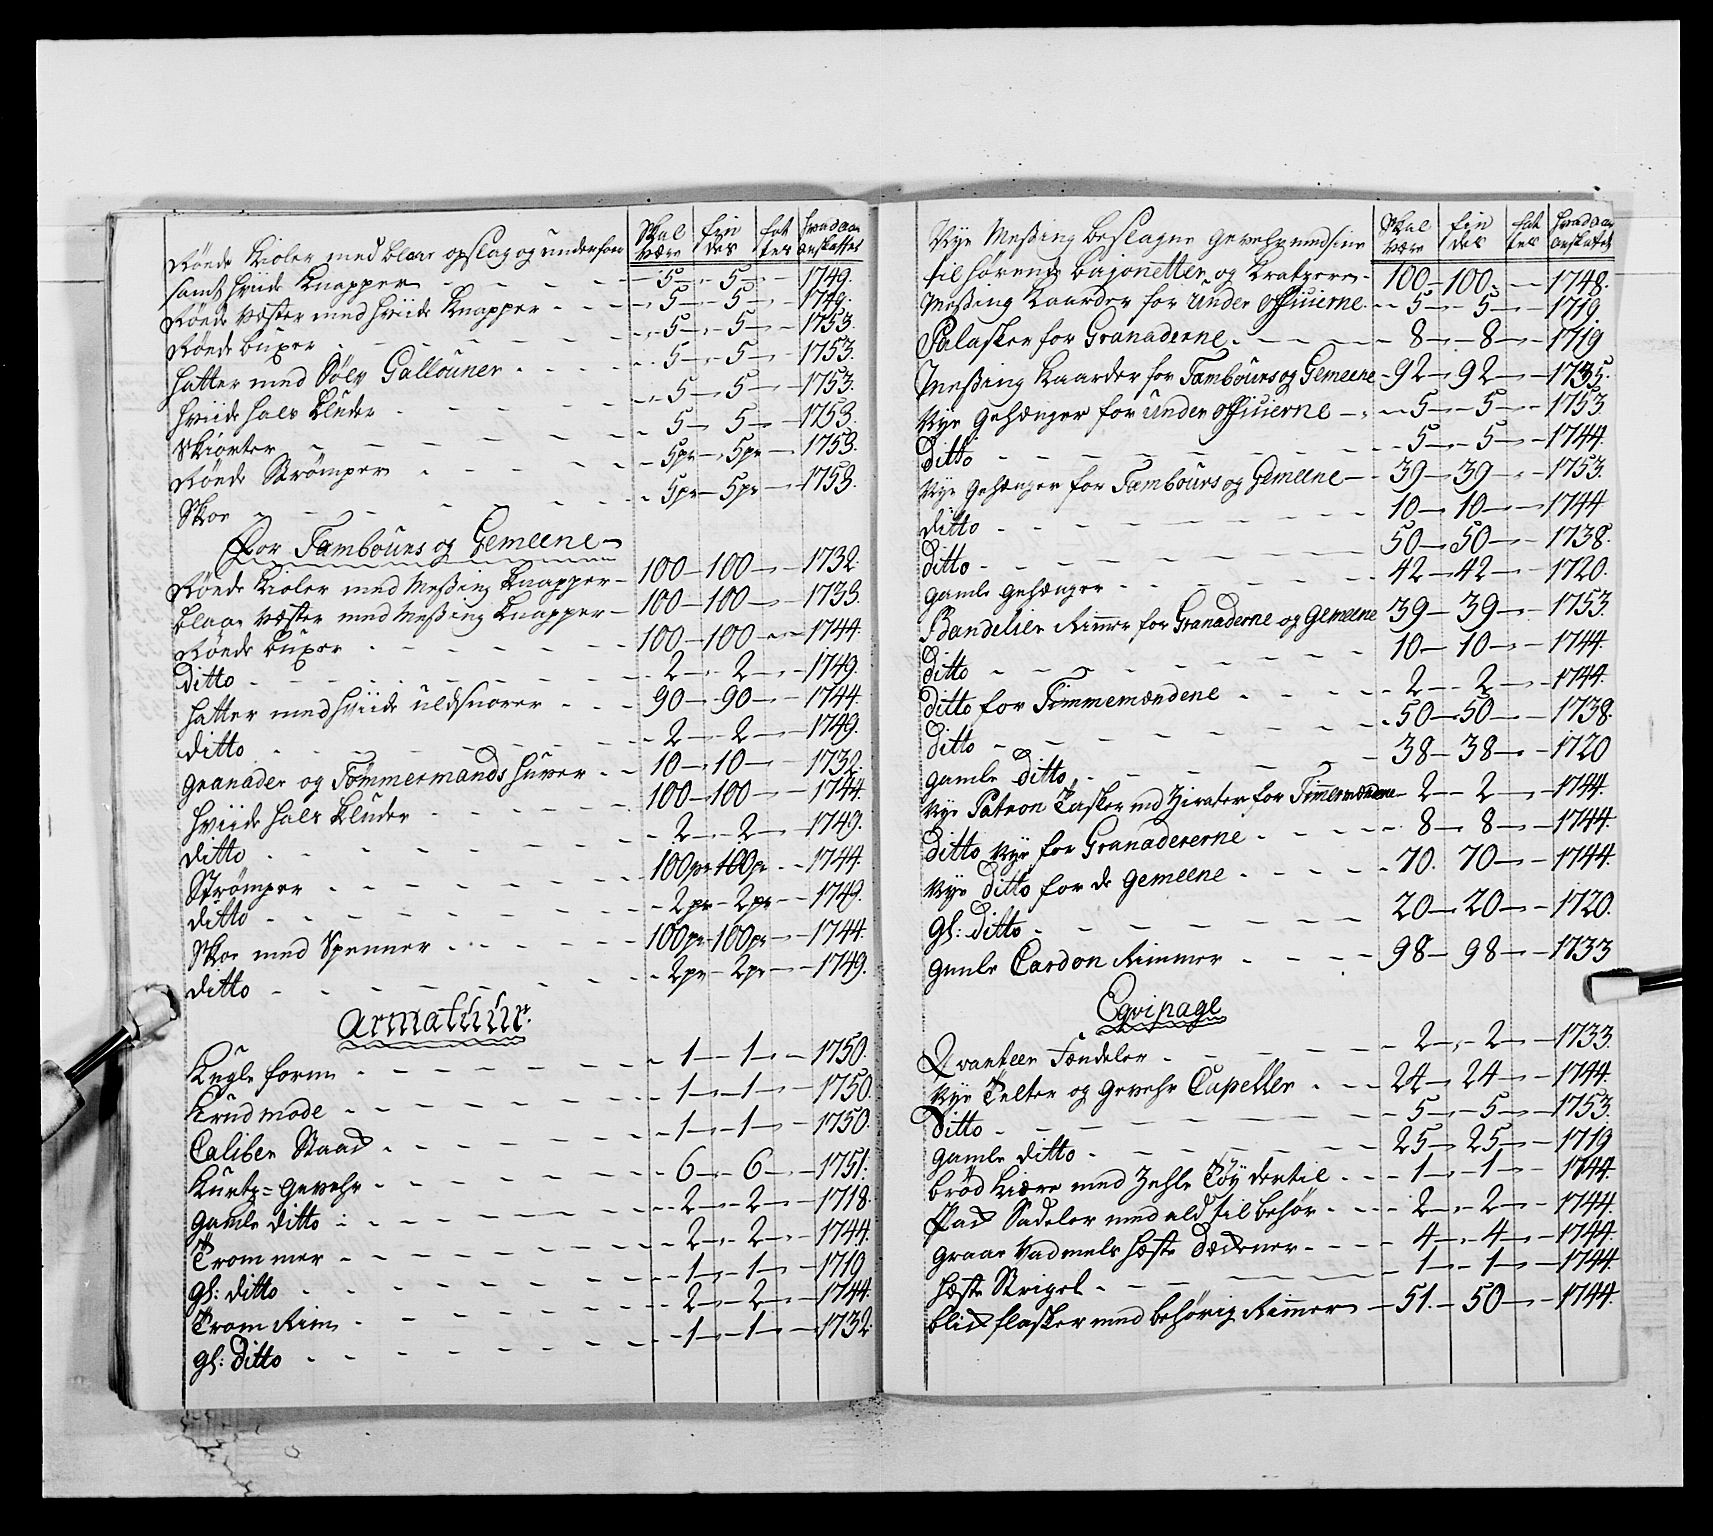 Skal være | fin des | fat tes | hvad aar anskaffet
Røede Kioler med blaae opslag og underfoer
samt hviide Knapper - 5 - 5 - 1749.
Røede Væster med hviide Knapper - 5 - 5 - 1749.
Røede buxer - 5 - 5 - 1753.
hatter med Sølv Gallouner - 5 - 5 - 1753.
hviide hals Kluder - 5 - 5 - 1753.
Skiorter - 5 - 5 - 1753.
Røede Strømper - 5pr - 5pr - 1753.
Skoe - 5pr - 5pr - 1753.
For Tambours og Gemeene
Røede Kioler med Meßing Knapper - 100 - 100 - 1732.
blaae Væster med Meßing Knapper - 100 - 100 - 1733.
Røede buxer - 100 - 100 - 1744.
Ditto - 2 - 2 - 1749.
hatter med hviide uldsnorer - 90 - 90 - 1744.
Ditto - 2 - 2 - 1749.
Granader og Tømmermands huver - 10 - 10 - 1732.
hviide hals Kluder - 100 - 100 - 1744.
Ditto - 2 - 2 - 1749.
Strømper - 100pr - 100pr - 1744.
Ditto - 2pr - 2pr - 1749.
Skoe med Spenner - 100pr - 100pr - 1744.
Ditto - 2pr - 2pr - 1749.
Armatuur.
Kugle form - 1 - 1 - 1750.
Krudmode - 1 - 1 - 1750.
Caliber Staad - 1 - 1 - 1750.
Kurtz=Gevehr - 6 - 6 - 1751.
Gamle Ditto - 2 - 2 - 1718.
Trommer - 2 - 2 - 1744.
Gl: Ditto - 1 - 1 - 1719
Trom Rem - 2 - 2 - 1744.
Gl: Ditto - 1 - 1 - 1732.
Skal være | fin des | fat tes | hvad aar anskaffet
Nye Meßing beslagne Gevehr med sine
tilhørende bajonetter og Kratzere - 100 - 100 - 1748.
Meßing Kaarder for Under Officierne - 5 - 5 - 1719
Palasker for Granaderne - 8 - 8 - 1719
Meßing Kaarder for Tambours og Gemeene - 92 - 92 - 1735.
Nye Gehænger for Under Officierne - 5 - 5 - 1753.
Ditto - 5 - 5 - 1744.
Nye Gehænger for Tambours og Gemeene - 39 - 39 - 1753.
Ditto - 10 - 10 - 1744
Ditto - 50 - 50 - 1738.
Gamle Gehænger - 42 - 42 - 1720.
Bandelier Rimer for Granaderne og Gemeene 39 - 39 - 1753.
Ditto - 10 - 10 - 1744.
Ditto for Timmermændene - 2 - 2 - 1744.
Ditto - 50 - 50 - 1738.
Gamle Ditto - 38 - 38 - 1720
Nye Patron Tasker md Zirater for Timmermændene - 2 - 2 - 1744.
Ditto Nye for Granadererne - 8 - 8 - 1744.
Nye Ditto for de Gemeene - 70. 70 - 1744.
Gl: Ditto - 20 - 20 - 1720.
Gamle Cardon Rimmer - 98 - 98 - 1733
Egvipage
Qvarteer Fændeler - 2 - 2 - 1733.
Nye Telter og Gevehr Capeller - 24 - 24 - 1744.
Ditto - 5 - 5 - 1753.
Gamle Ditto - 25 - 25 - 1719
brød Kiære med Zehle Tøy dertil - 1 - 1 - 1744.
Pad Sadeler med ald tilbehør - 2 - 2 - 1744.
Graae Vadmels heste Dædener - 4 - 4 - 1744.
heste Strigel - 1 - 1 - 1744.
blik flasker med behørig Rimmer - 51. - 50 - 1744.